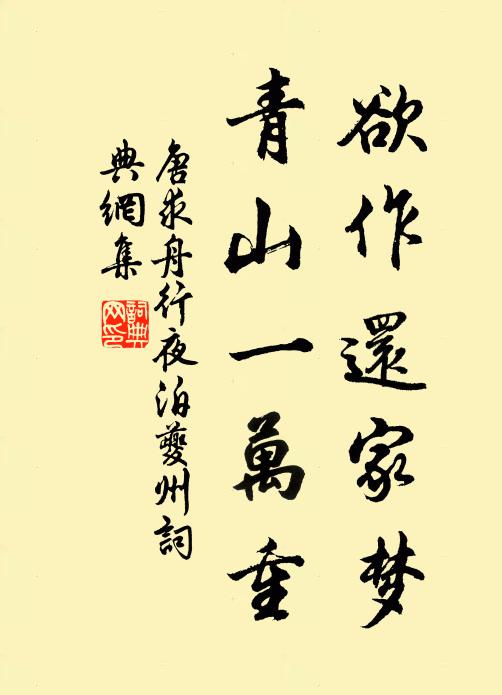 欲作還家梦
青山一萬重
唐求舟行夜泊夔州詞
典網集
詞典
网印